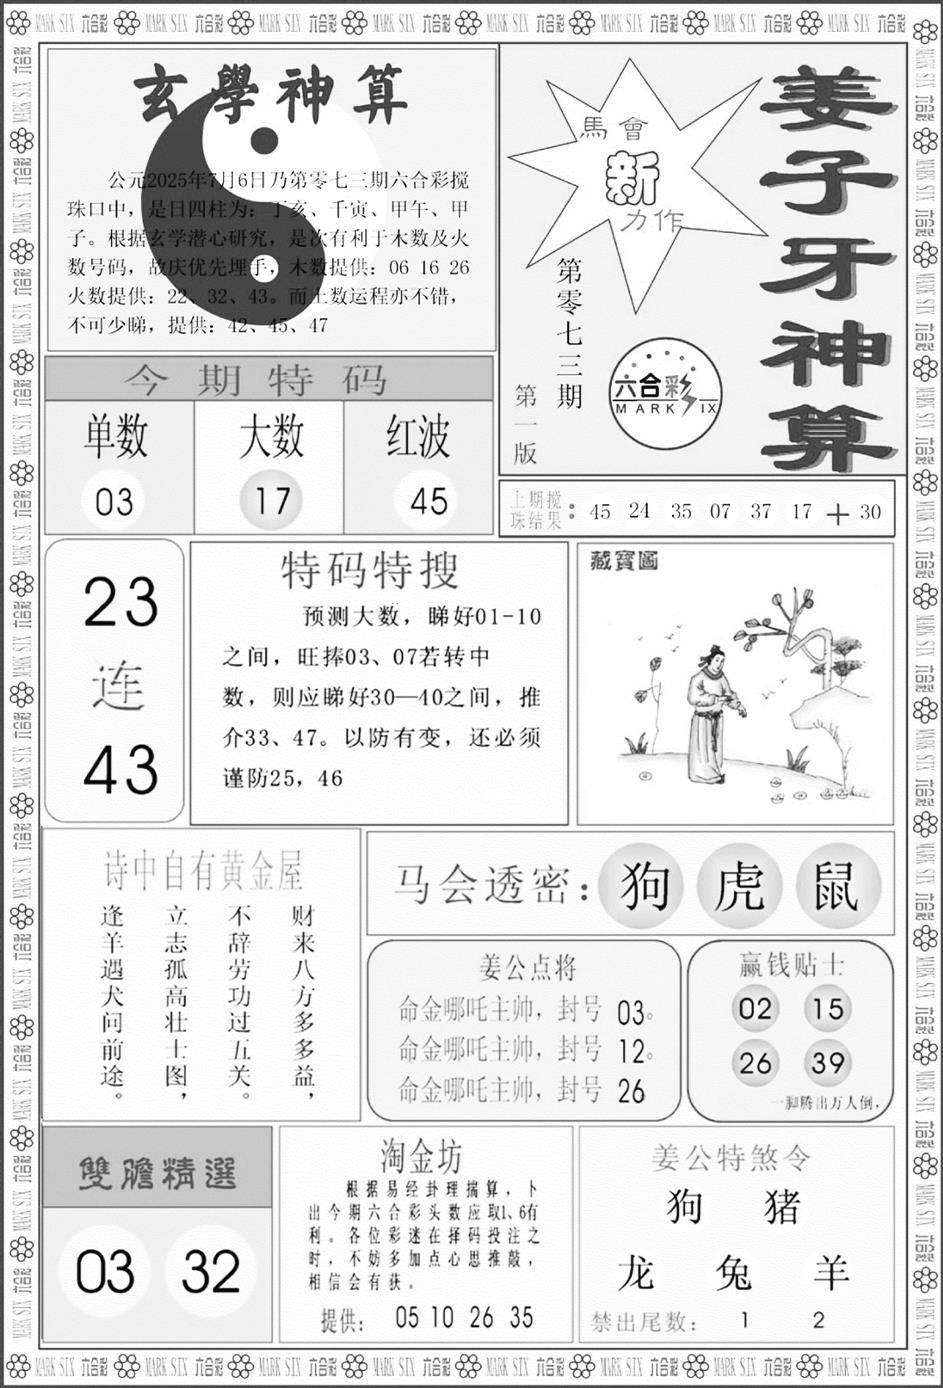 玄學神算
公元2025年7月6日乃第零七三期六合彩搅
珠口中，是日四柱为：丁亥、千寅、甲午、甲
子。根据玄学潜心研究，是次有利于木数及火
数号码，故庆优先埋手，木数提供：06 16 26
火数提供：22、32、43。而土数运程亦不错，
不可少睇，提供：42、45、47
馬會
新
力作
第零七三期
第一版
六合彩
MARK SIX
姜子牙神算
今期特码
单数 大数 红波
03 17 45
上期搅
珠结果：45 24 35 07 37 17 + 30
23
连
43
特码特搜
预测大数，睇好01-10
之间，旺捧03、07若转中
数，则应睇好30—40之间，推
介33、47。以防有变，还必须
谨防25，46
藏寶圖
诗中自有黄金屋
财来八方多多益，
不辞劳功过五关。
立志孤高壮士图，
逢羊遇犬问前途。
马会透密：狗 虎 鼠
姜公点将
命金哪吒主帅，封号 03。
命金哪吒主帅，封号 12。
命金哪吒主帅，封号 26
赢钱贴士
02 15
26 39
一脚腾出万人倒，
雙膽精選
03 32
淘金坊
根据易经卦理揣算，卜
出今期六合彩头数应取1、6有
利。各位彩迷在择码投注之
时，不妨多加点心思推敲，
相信会有获。
提供： 05 10 26 35
姜公特煞令
狗 猪
龙 兔 羊
禁出尾数： 1 2